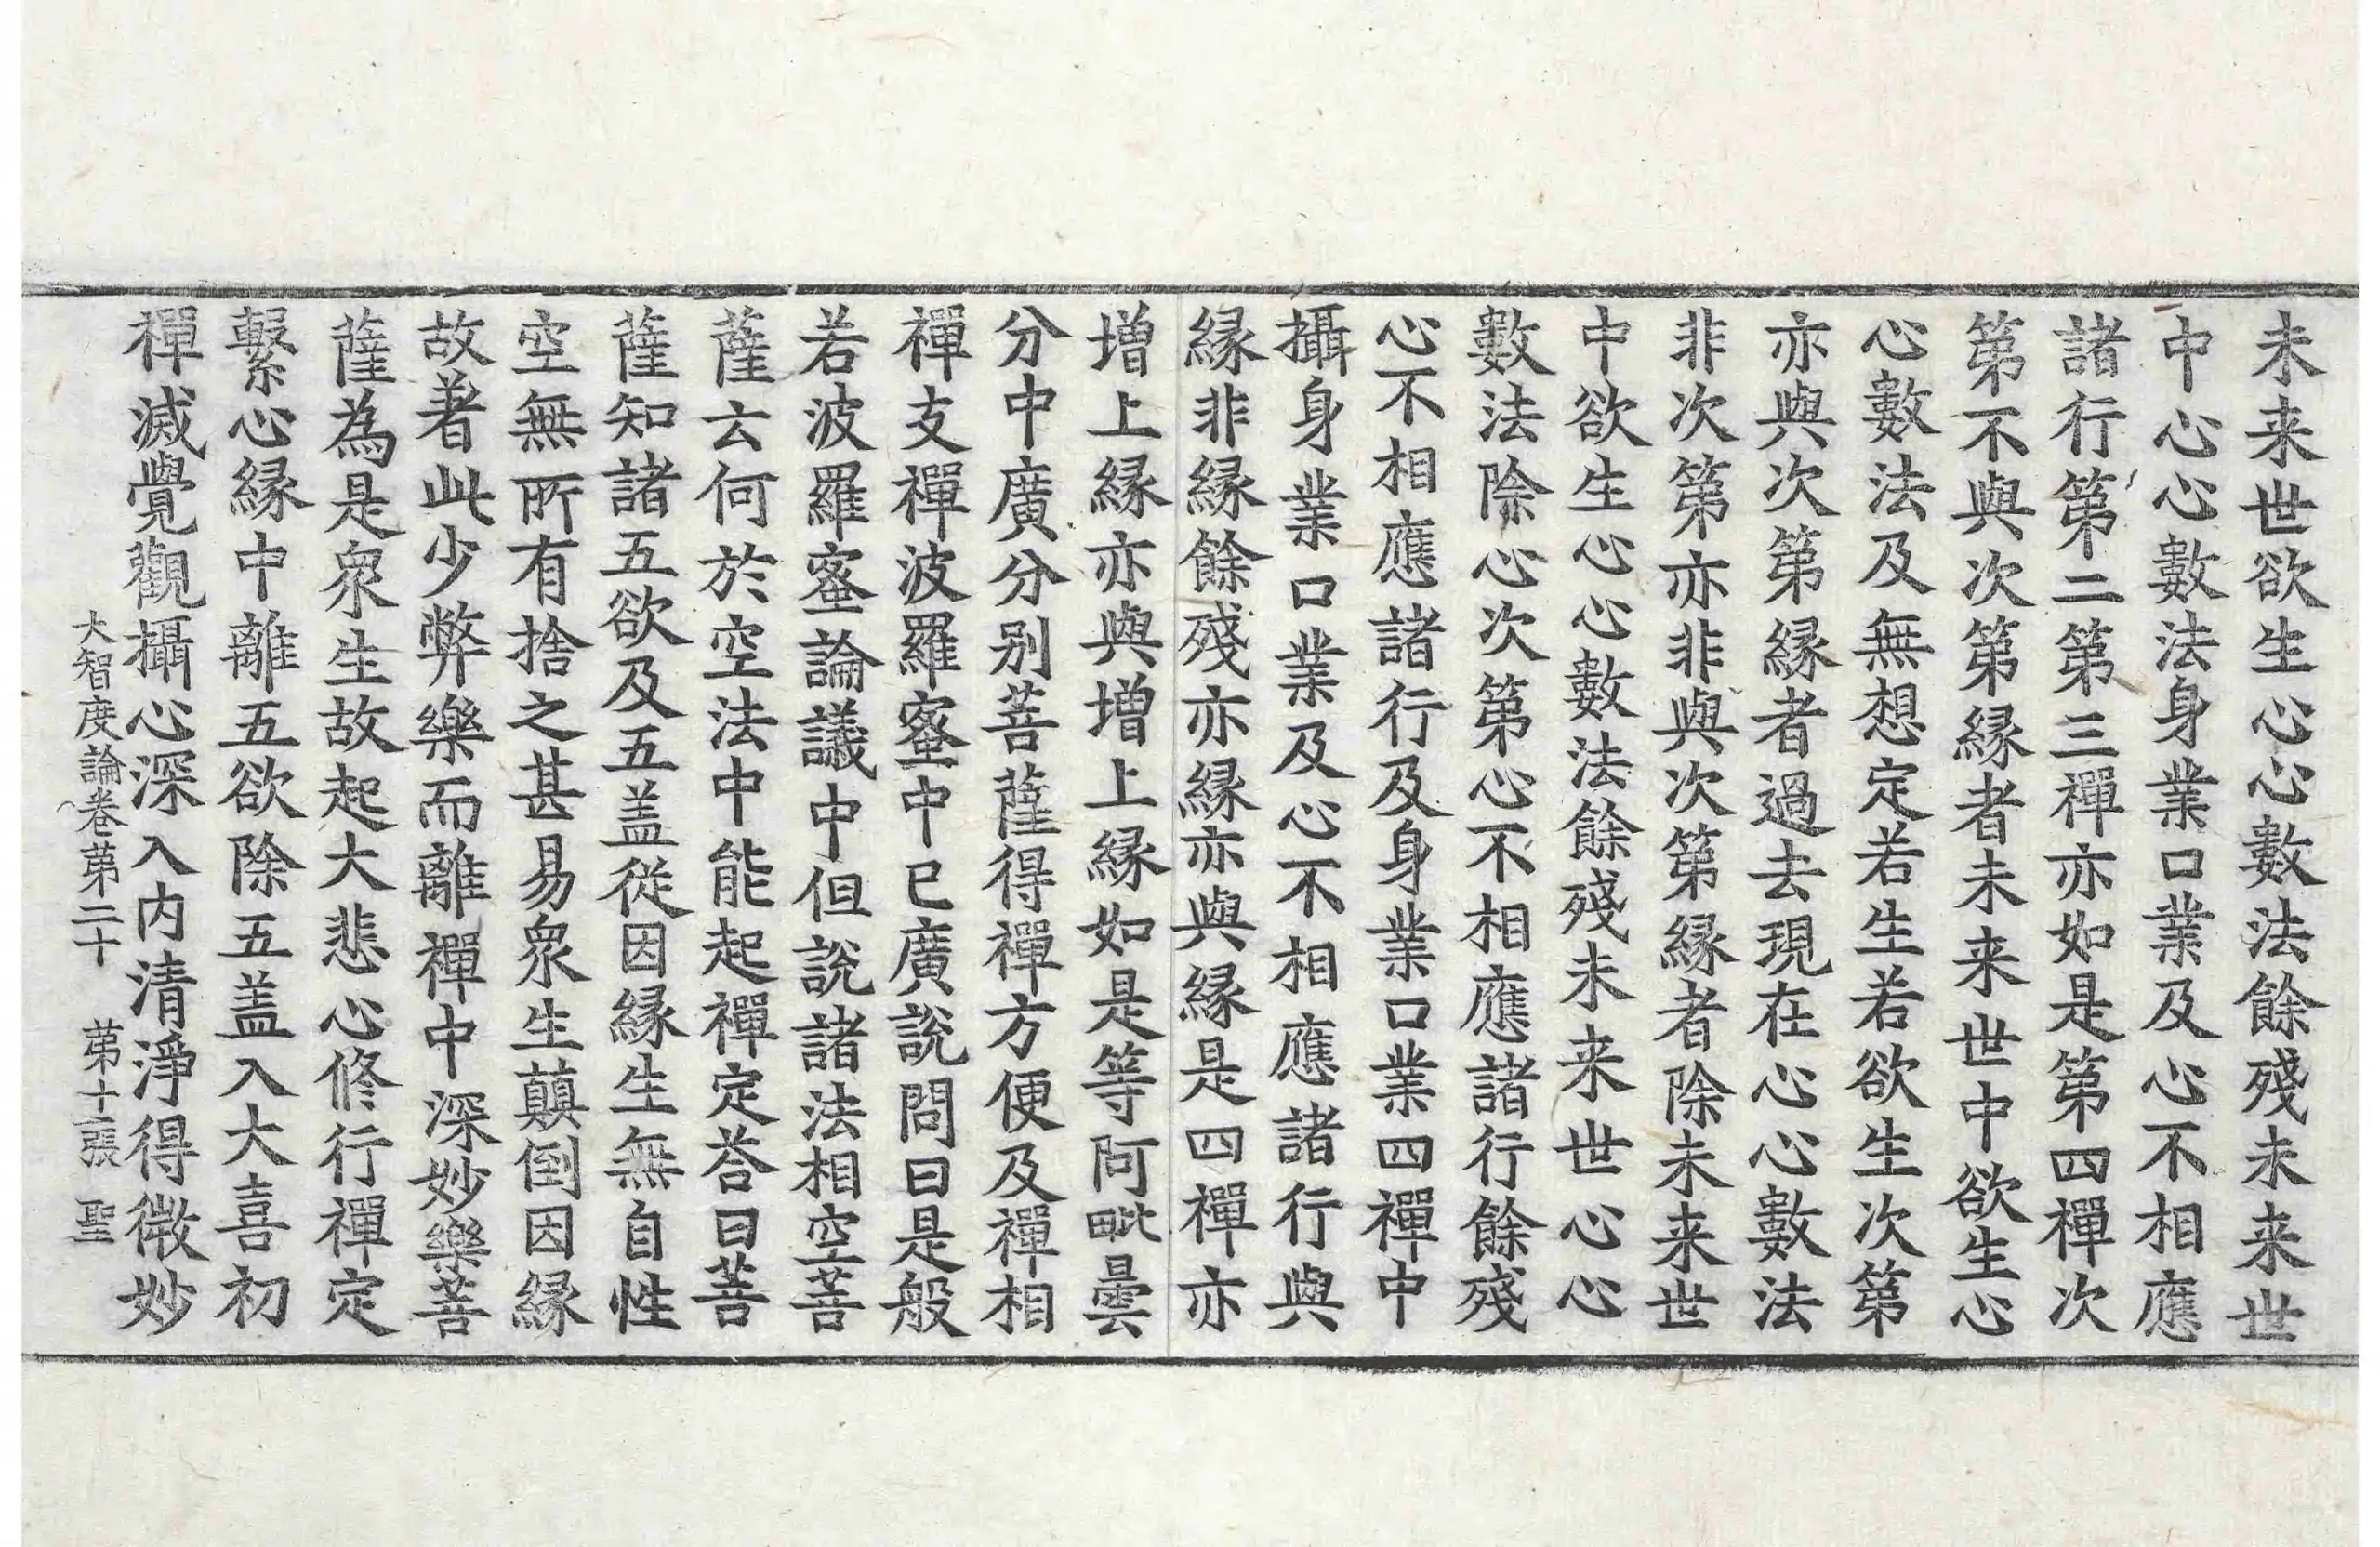 未来世欲生心心數法餘殘未来世
中心心數法身業口業及心不相應
諸行第二第三禪亦如是第四禪次
第不與次第縁者未来世中欲生心
心數法及無想定若生若欲生次第
亦與次第縁者過去現在心心數法
非次第亦非與次第縁者除未来世
中欲生心心數法餘殘未来世心心
數法除心次第心不相應諸行餘殘
心不相應諸行及身業口業四禪中
攝身業口業及心不相應諸行與
縁非縁餘殘亦縁亦與縁是四禪亦
增上縁亦與增上縁如是等阿毗曇
分中廣分别菩薩得禪方便及禪相
禪支禪波羅蜜中已廣說問曰是般
若波羅蜜論議中但說諸法相空菩
薩云何於空法中能起禪定荅曰菩
薩知諸五欲及五盖從因縁生無自性
空無所有捨之甚易衆生顛倒因縁
故著此少弊樂而離禪中深妙樂菩
薩為是衆生故起大悲心修行禪定
繫心縁中離五欲除五盖入大喜初
禪滅覺觀攝心深入内清淨得微妙
大智度論卷第二十　第十二張　聖